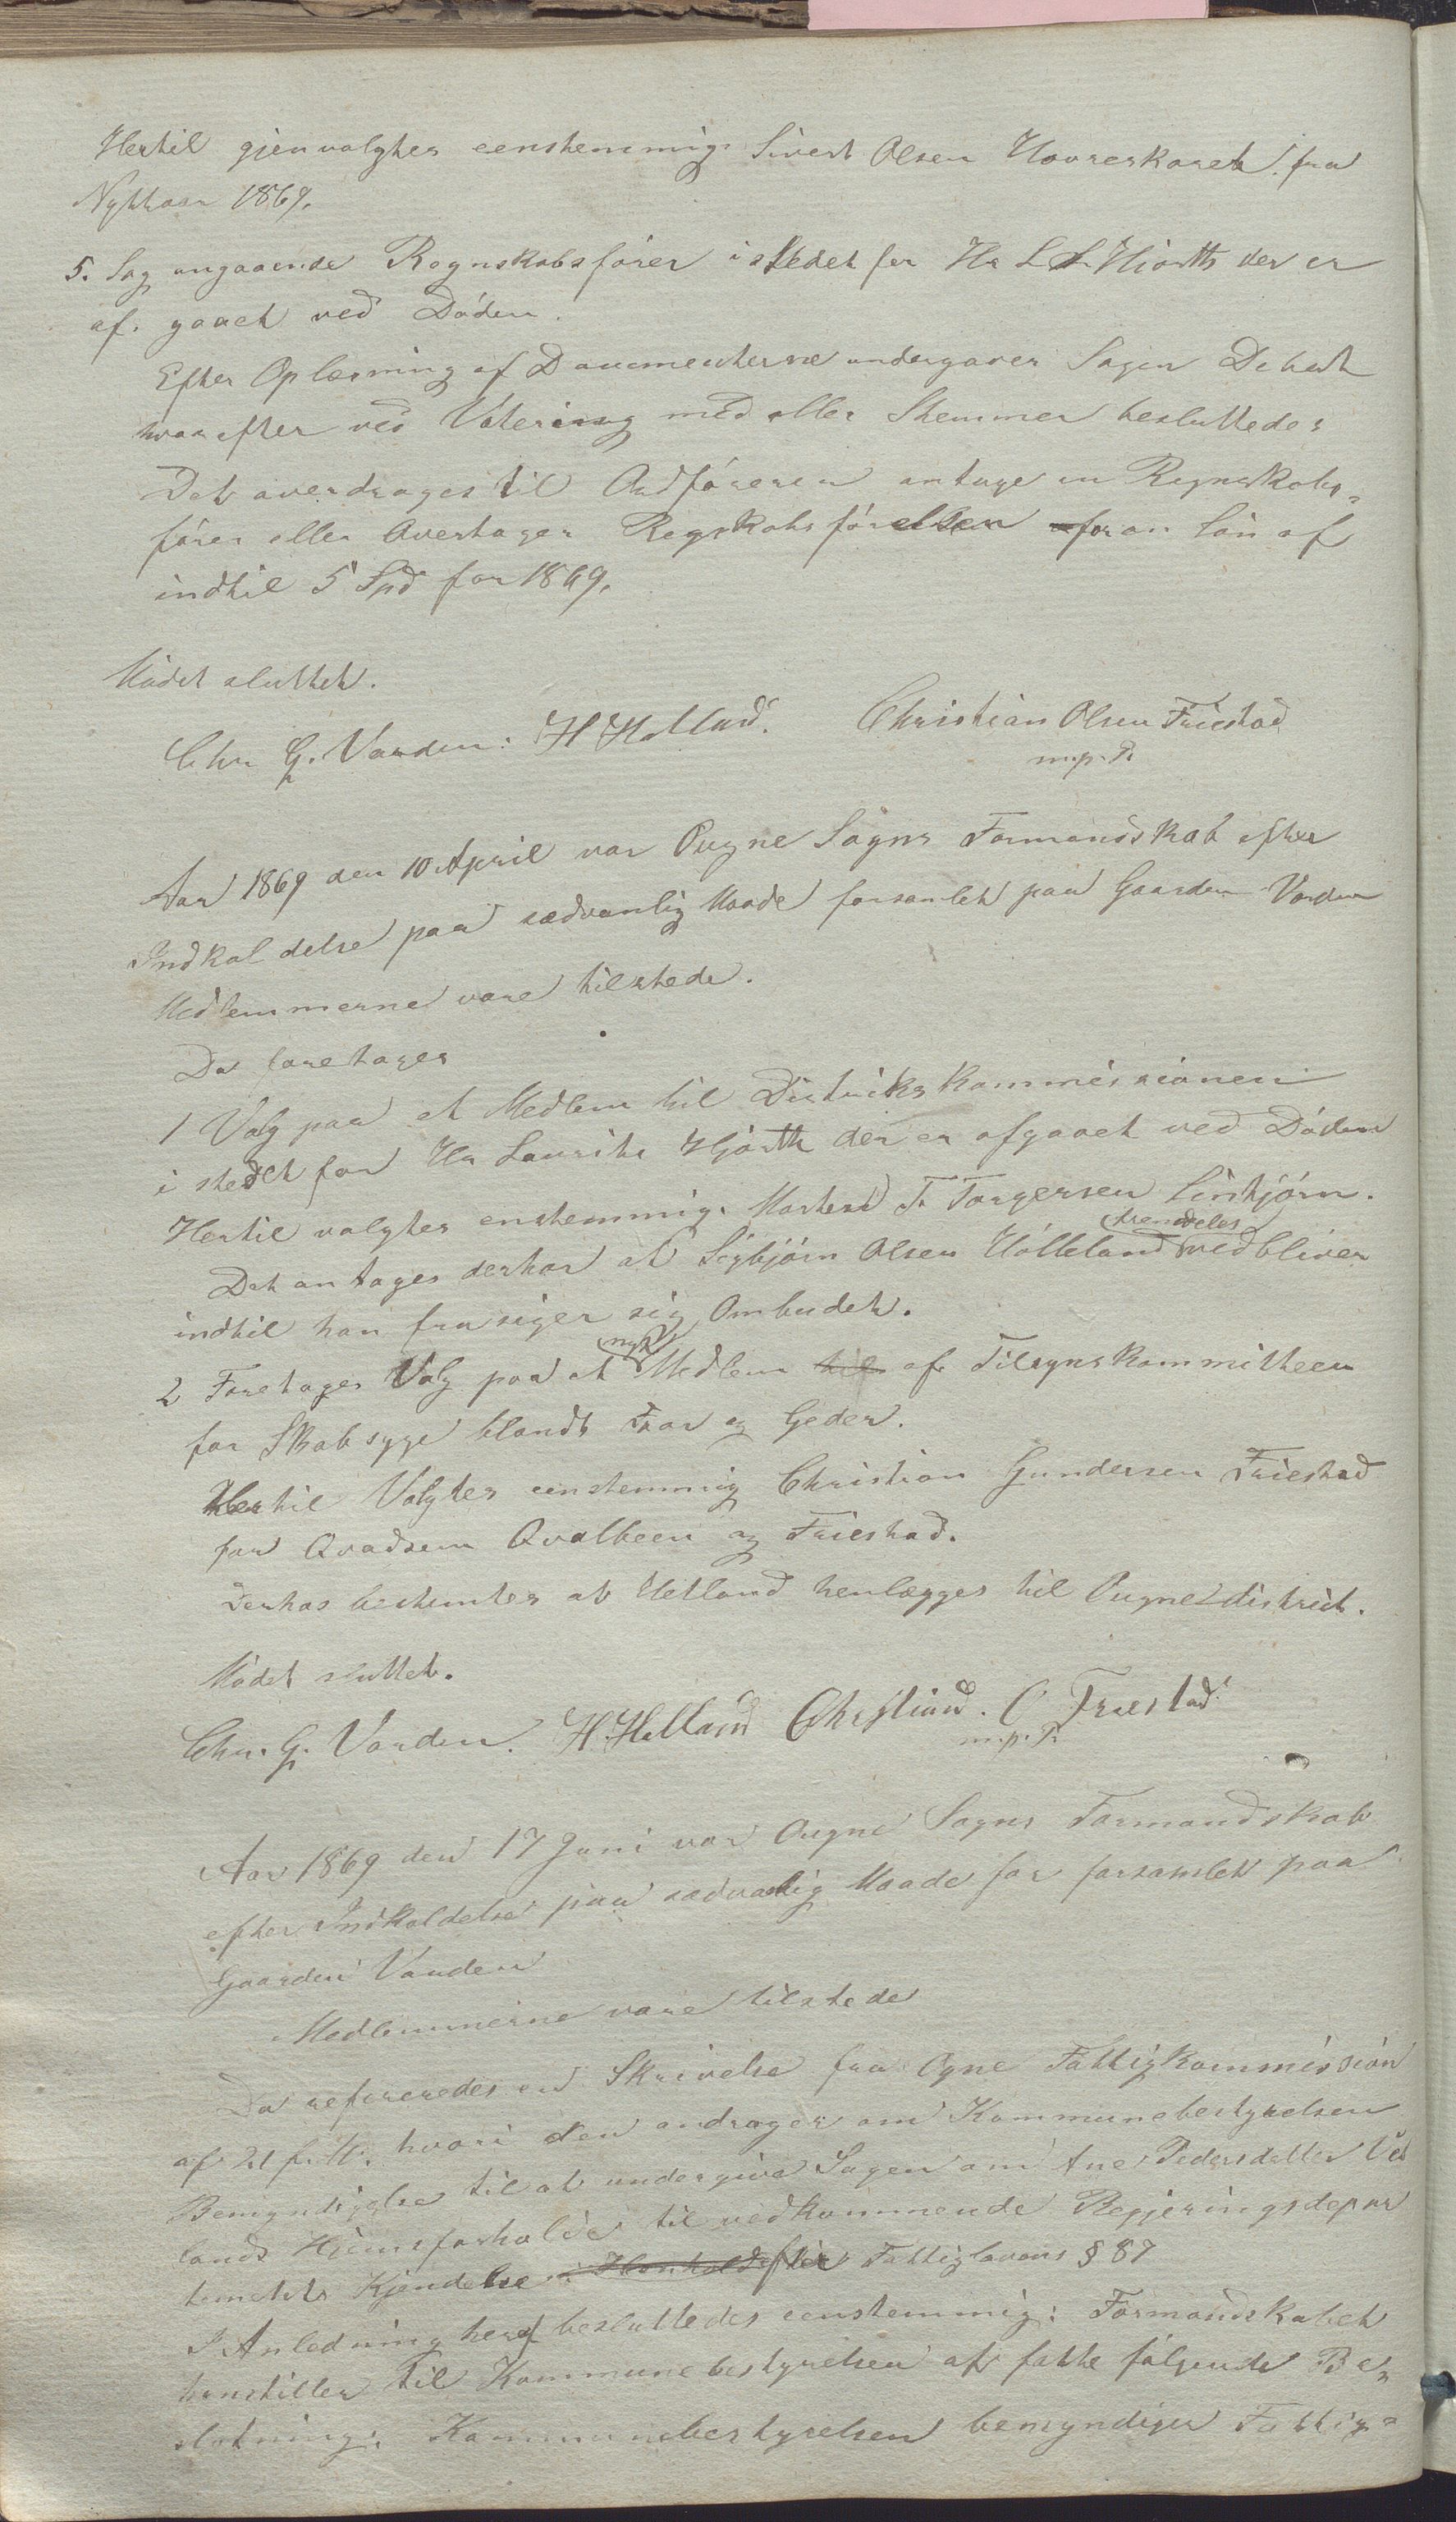 Hertil gjenvalgtes eenstemmig Sivert Olsen Hovreskaret fra
Nyttaar 1869.
5. Sag angaaende Regnskabsfører istedet for Hr L L Hiorth der er
af. gaaet ved Døden.
Efter Oplæsning af Documenterne undergaves Sagen Debat
hvorefter ved Votering med alle Stemmer besluttedes
Det overdrages til Ordføreren antage en Regnskabs-
fører eller Overtager Regskabsførelsen for en Løn af
indtil 5 Spd for 1869.
Mødet sluttet.
Chr. G. Varden. H Helland. Christian Olsen Friestad
m.p.P.
Aar 1869 den 10 April var Ougne Sogns Formandskab efter
Indkaldelse paa sædvanlig Maade forsamlet paa Gaarden Varden
Medlemmerne vare tilstede.
Da foretoges
1 Valg paa et Medlem til Distriktskommissionen
i stedet for Hr Lauritz Hjorth der er afgaaet ved Døden
Hertil valgtes enstemmig. Morten T. Torgersen Sintjørn.
Det antages derhos at Sigbjørn Olsen Hølleland (fremdeles) vedbliver
indtil han frasiger sig Ombudet.
2 Foretoges Valg paa et (nyt) Medlem til af Tilsynskommitteen
for Skabsyge blandt Faar og Geder.
Hertil Valgtes eenstemmig Christian Gundersen Friestad
for Qvadsem Qvalbeen og Friestad.
Derhos bestemtes at Hetland henlægges til Ougne district.
Mødet sluttet.
Chr. G. Varden. H. Helland Christian. O Friestad
m.p.P.
Aar 1869 den 17 Juni var Ougne Sogns Formandskab
efter Indkaldelse paa sædvanlig Maade for forsamlet paa
Gaarden Varden
Medlemmerne vare tilstede
Da refereredes en Skrivelse fra Ogne Fattigkommission
af 21 f. M. hvori den andrager om Kommunebestyrelsen
Bemyndigelse til at undergive Sagen om Ane Pedersdatter Ued
lands Hjemsforhold til vedkommende Regjeringsdepar
tements Kjendelse i Henhold efter Fattiglovens § 87
I Anledning heraf besluttedes eenstemmig: Formandskabet
henstiller til Kommunebestyrelsen at fatte følgende Be-
slutning: Kommunebestyrelsen bemyndiger Fattig-